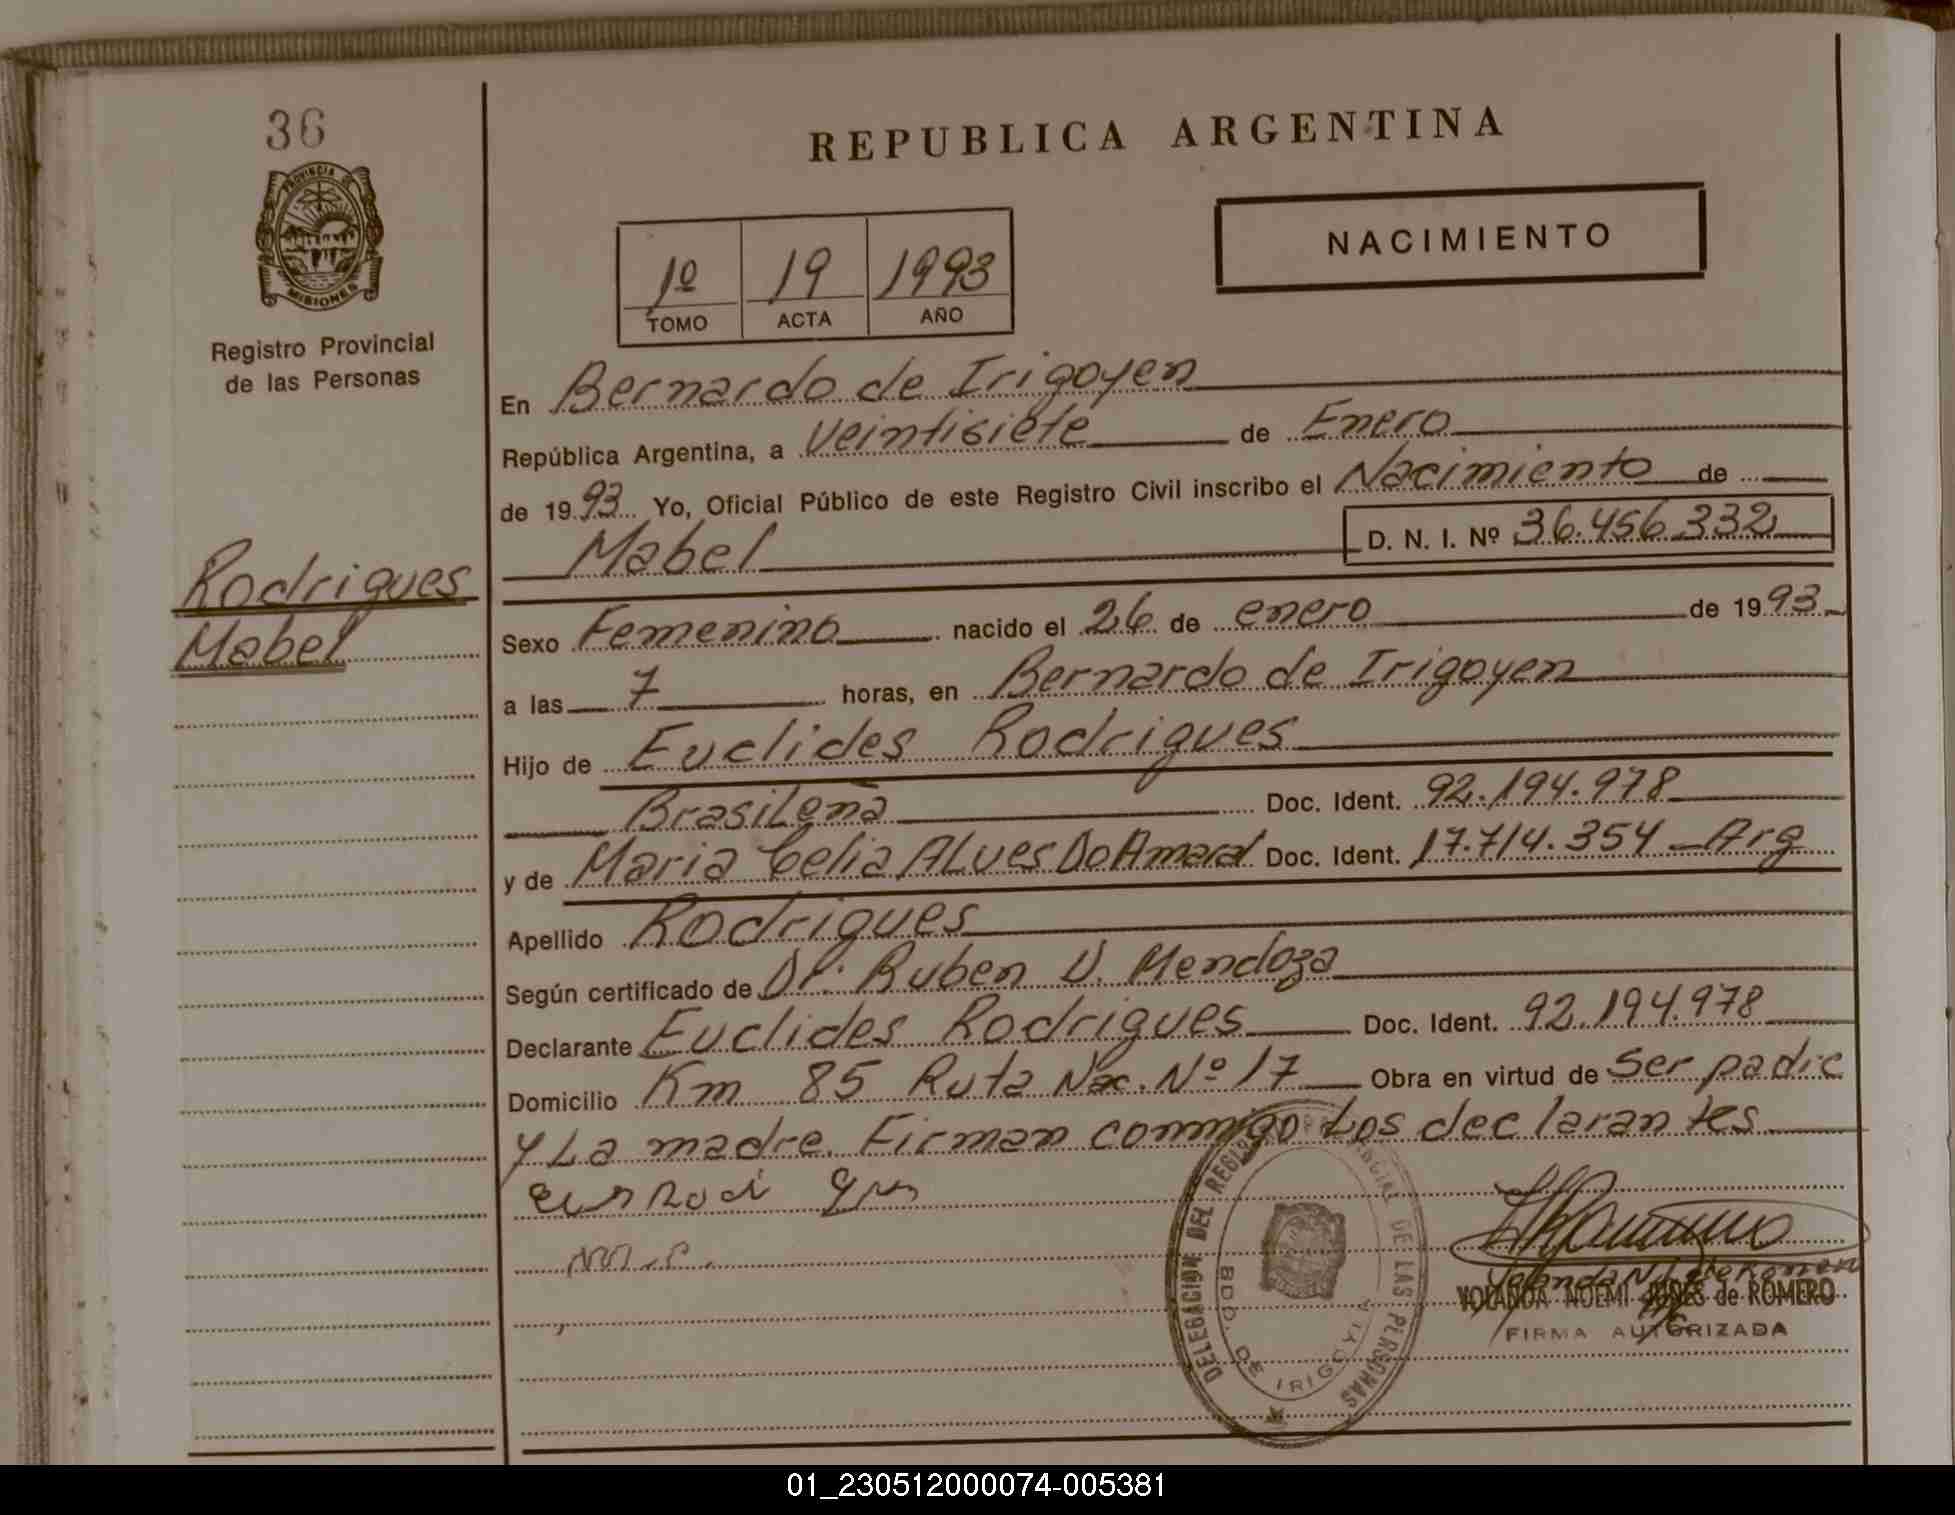 36
PROVINCIA DE
MISIONES
Registro Provincial
de las Personas
Rodrigues
Mabel
REPUBLICA ARGENTINA
1º 19 1993
TOMO ACTA AÑO
NACIMIENTO
En Bernardo de Irigoyen
República Argentina, a Veintisiete de Enero
de 1993 Yo, Oficial Público de este Registro Civil inscribo el Nacimiento de
Mabel D. N. I. Nº 36.456.332
Sexo Femenino nacido el 26 de enero de 1993
a las 7 horas, en Bernardo de Irigoyen
Hijo de Euclides Rodrigues
Brasileña Doc. Ident. 92.194.978
y de Maria Celia Alves Do Amaral Doc. Ident. 17.714.354 - Arg
Apellido Rodrigues
Según certificado de Dr. Ruben D. Mendoza
Declarante Euclides Rodrigues Doc. Ident. 92.194.978
Domicilio Km 85 Ruta Nac. Nº 17 Obra en virtud de ser padre
y La madre. Firman conmigo Los declarantes
DELEGACION DEL REGISTRO PROVINCIAL DE LAS PERSONAS
BDO. DE IRIGOYEN
YOLANDA NOEMI de ROMERO
FIRMA AUTORIZADA
01_230512000074-005381